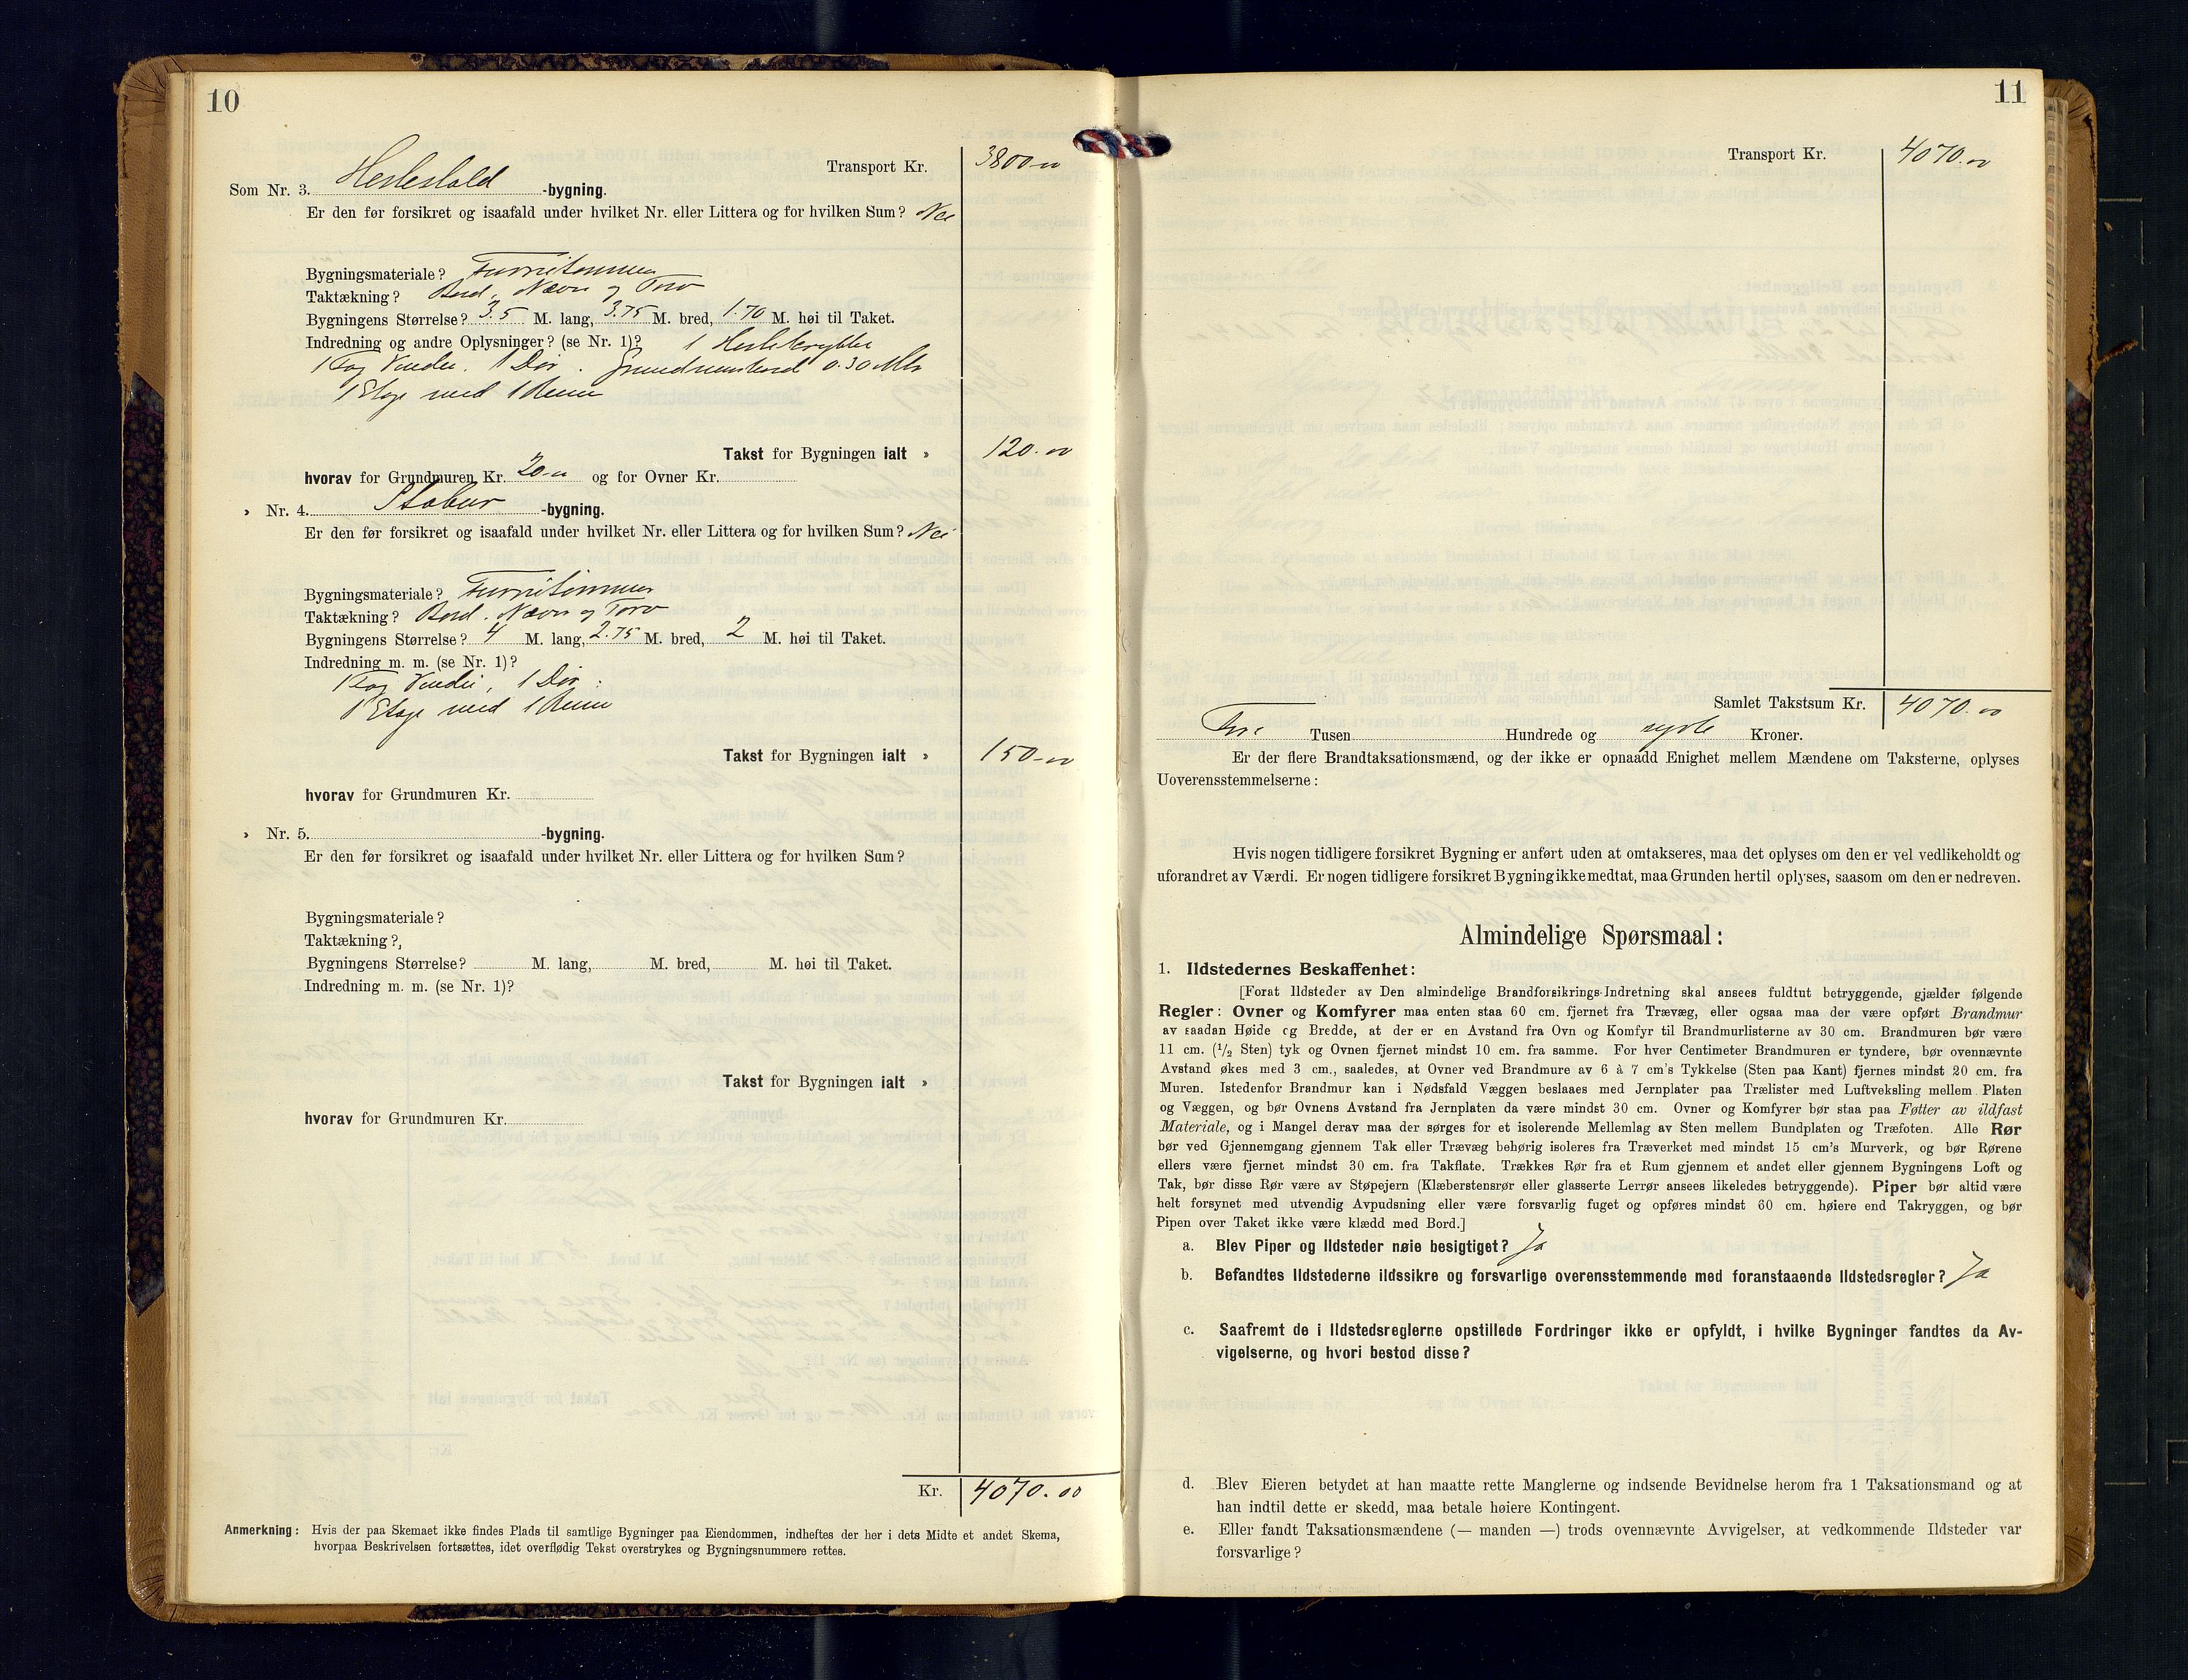 10
Transport Kr. 3800-00
Som Nr. 3. Hestestald -bygning.
Er den før forsikret og isaafald under hvilket Nr. eller Littera og for hvilken Sum? Nei
Bygningsmateriale? Furritømmer
Taktækning? Bord, Næver og Torv
Bygningens Størrelse? 3.5 M. lang, 3.75 M. bred, 1.70 M. høi til Taket.
Indredning og andre Oplysninger? (se Nr. 1)? 1 Hestekrybbe
1 Fag Vindu. 1 Dør. 0.30 Mtr
1 Etage med 1 Rum
Takst for Bygningen ialt » 120-00
hvorav for Grundmuren Kr. 20-00 og for Ovner Kr.
» Nr. 4. Stabur -bygning.
Er den før forsikret og isaafald under hvilket Nr. eller Littera og for hvilken Sum? Nei
Bygningsmateriale? Furritømmer
Taktækning? Bord. Næver og Torv
Bygningens Størrelse? 4 M. lang, 2.75 M. bred, 2 M. høi til Taket.
Indredning m. m. (se Nr. 1)?
1 Fag Vindu, 1 Dør.
1 Etage med 1 Rum
Takst for Bygningen ialt » 150-00
hvorav for Grundmuren Kr.
» Nr. 5. -bygning.
Er den før forsikret og isaafald under hvilket Nr. eller Littera og for hvilken Sum?
Bygningsmateriale?
Taktækning?,
Bygningens Størrelse? M. lang, M. bred, M. høi til Taket.
Indredning m. m. (se Nr. 1)?
Takst for Bygningen ialt »
hvorav for Grundmuren Kr.
Kr. 4070.00
Anmerkning: Hvis der paa Skemaet ikke findes Plads til samtlige Bygninger paa Eiendommen, indheftes der her i dets Midte et andet Skema,
hvorpaa Beskrivelsen fortsættes, idet overflødig Tekst overstrykes og Bygningsnummere rettes.
11
Transport Kr. 4070.00
Samlet Takstsum Kr. 4070.00
Fire Tusen Hundrede og sytti Kroner.
Er der flere Brandtaksationsmænd, og der ikke er opnaadd Enighet mellem Mændene om Taksterne, oplyses
Uoverensstemmelserne:
Hvis nogen tidligere forsikret Bygning er anført uden at omtakseres, maa det oplyses om den er vel vedlikeholdt og
uforandret av Værdi. Er nogen tidligere forsikret Bygning ikke medtat, maa Grunden hertil oplyses, saasom om den er nedreven.
Almindelige Spørsmaal:
1. Ildstedernes Beskaffenhet:
[Forat Ildsteder av Den almindelige Brandforsikrings-Indretning skal ansees fuldtut betryggende, gjælder følgende
Regler: Ovner og Komfyrer maa enten staa 60 cm. fjernet fra Trævæg, eller ogsaa maa der være opført Brandmur
av saadan Høide og Bredde, at der er en Avstand fra Ovn og Komfyr til Brandmurlisterne av 30 cm. Brandmuren bør være
11 cm. (1/2 Sten) tyk og Ovnen fjernet mindst 10 cm. fra samme. For hver Centimeter Brandmuren er tyndere, bør ovennævnte
Avstand økes med 3 cm., saaledes, at Ovner ved Brandmure av 6 à 7 cm's Tykkelse (Sten paa Kant) fjernes mindst 20 cm. fra
Muren. Istedenfor Brandmur kan i Nødsfald Væggen beslaaes med Jernplater paa Trælister med Luftveksling mellem Platen
og Væggen, og bør Ovnens Avstand fra Jernplaten da være mindst 30 cm. Ovner og Komfyrer bør staa paa Føtter av ildfast
Materiale, og i Mangel derav maa der sørges for et isolerende Mellemlag av Sten mellem Bundplaten og Træfoten. Alle Rør
bør ved Gjennemgang gjennem Tak eller Trævæg behørig isoleres fra Træverket med mindst 15 cm's Murverk, og bør Rørene
ellers være fjernet mindst 30 cm. fra Takflate. Trækkes Rør fra et Rum gjennem et andet eller gjennem Bygningens Loft og
Tak, bør disse Rør være av Støpejern (Klæberstensrør eller glasserte Lerrør ansees likeledes betryggende). Piper bør altid være
helt forsynet med utvendig Avpudsning eller være forsvarlig fuget og opføres mindst 60 cm. høiere end Takryggen, og bør
Pipen over Taket ikke være klædd med Bord.]
a. Blev Piper og Ildsteder nøie besigtiget? Ja
b. Befandtes Ildstederne ildssikre og forsvarlige overensstemmende med foranstaaende Ildstedsregler? Ja
c. Saafremt de i Ildstedsreglerne opstillede Fordringer ikke er opfyldt, i hvilke Bygninger fandtes da Av-
vigelserne, og hvori bestod disse?
d. Blev Eieren betydet at han maatte rette Manglerne og indsende Bevidnelse herom fra 1 Taksationsmand og at
han indtil dette er skedd, maa betale høiere Kontingent.
e. Eller fandt Taksationsmændene (— manden —) trods ovennævnte Avvigelser, at vedkommende Ildsteder var
forsvarlige?